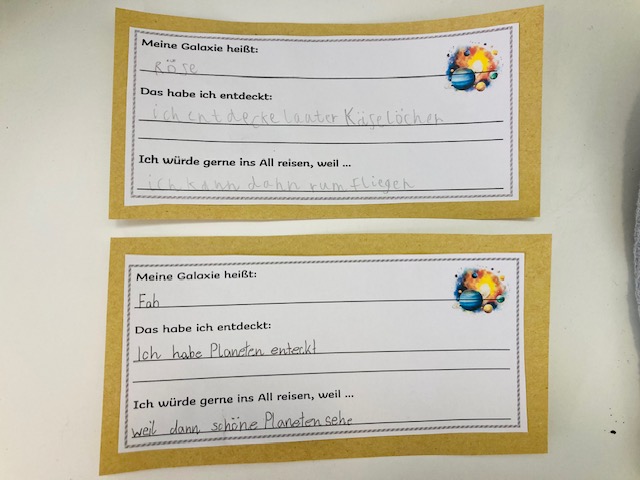 Meine Galaxie heißt:
Köse
Das habe ich entdeckt:
ich entdecke lauter Käselöcher
Ich würde gerne ins All reisen, weil ...
ich kann dann rum fliegen
Meine Galaxie heißt:
Fah
Das habe ich entdeckt:
Ich habe Planeten enteckt
Ich würde gerne ins All reisen, weil ...
weil dann schöne Planeten sehe